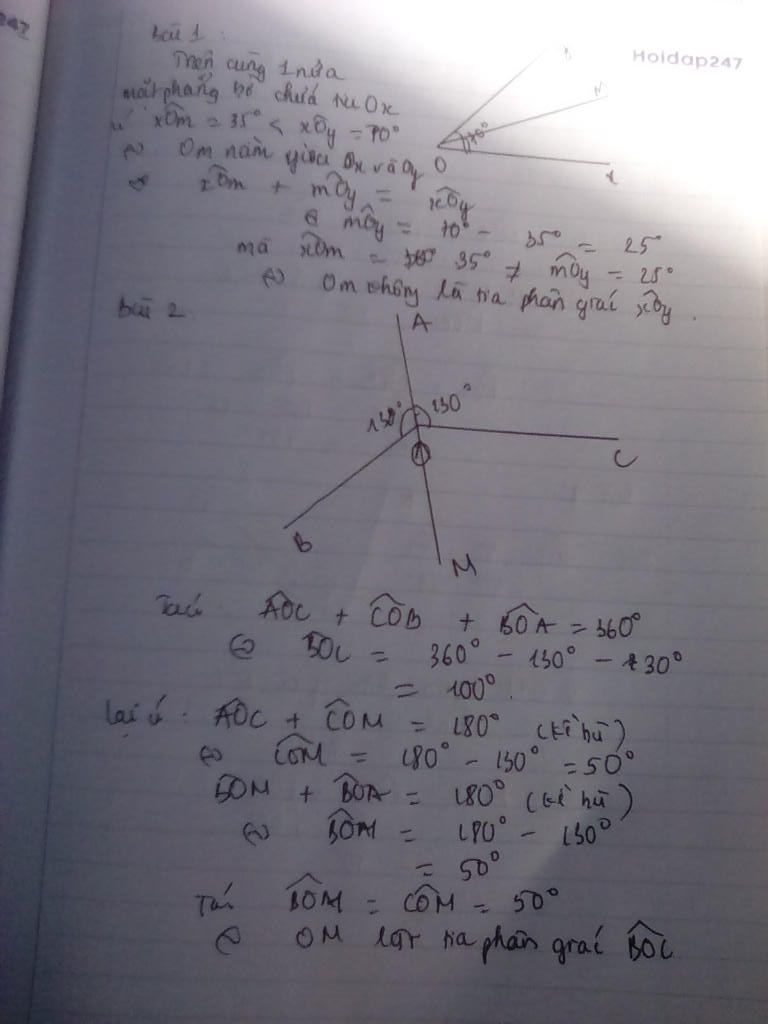 247
Hoidap247
Bài 1 :
Trên cùng 1 nửa
mặt phẳng bờ chứa tia Ox
có xÔm = 35° < xÔy = 70°
⇔ Om nằm giữa Ox và Oy
⇔ xÔm + mÔy = xÔy
⇔ mÔy = 70° - 35° = 25°
mà xÔm = 35° ≠ mÔy = 25°
⇔ Om không là tia phân giác xÔy.
M
70°
O
x
Bài 2
A
130° 130°
O
C
B
M
Ta có AÔC + CÔB + BÔA = 360°
⇔ BÔC = 360° - 130° - 130°
= 100°.
Lại có : AÔC + CÔM = 180° (kề bù)
⇔ CÔM = 180° - 130° = 50°
BÔM + BÔA = 180° (kề bù)
⇔ BÔM = 180° - 130°
= 50°
Ta có BÔM = CÔM = 50°
⇔ OM là tia phân giác BÔC